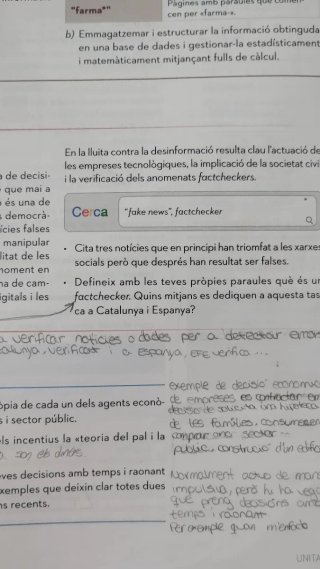 "farma*"
Pàgines amb paraules que comen-
cen per «farma-».
b) Emmagatzemar i estructurar la informació obtinguda
en una base de dades i gestionar-la estadísticament
i matemàticament mitjançant fulls de càlcul.
En la lluita contra la desinformació resulta clau l'actuació de
les empreses tecnològiques, la implicació de la societat civi
i la verificació dels anomenats factcheckers.
a de decisi-
que mai a
o és una de
s democrà-
ícies falses
manipular
litat de les
moment en
na de cam-
igitals i les
Cerca
"fake news", factchecker
• Cita tres notícies que en principi han triomfat a les xarxes
socials però que després han resultat ser falses.
• Defineix amb les teves pròpies paraules què és un
factchecker. Quins mitjans es dediquen a aquesta tas
ca a Catalunya i Espanya?
a verificar notícies o dades per a detectar errors
catalunya, verificat i a espanya, EFE verifica ...
òpia de cada un dels agents econò-
s i sector públic.
els incentius la «teoria del pal i la
son els diners
eves decisions amb temps i raonant
xemples que deixin clar totes dues
ns recents.
exemple de decisió econòmic
de empreses es contractar
de les famílies,
comprar una
pública, construcció d'un edifici
Normalment actuo de man
impulsiva, però hi ha veg
que prenc decisions amb
temps i raonant
Per exemple quan m'enfado
UNITA